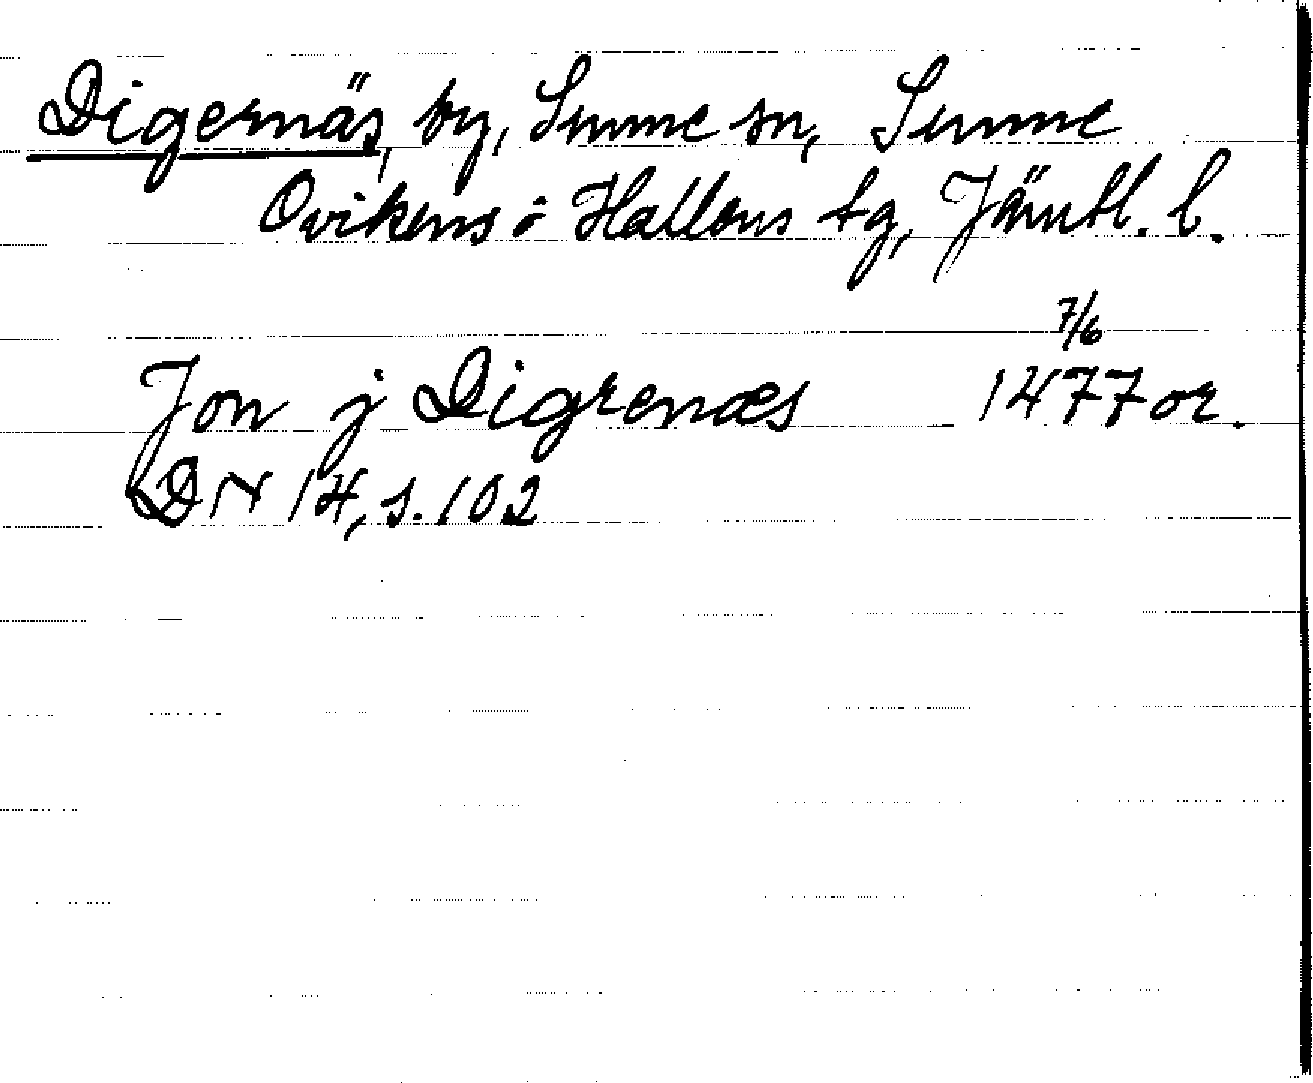 Digernäs, by, Sunne sn, Sunne
Ovikens o Hallens tg, Jämtl. l.
7/6
Jon j Digrenæs 1477 or.
DN 14, s. 102